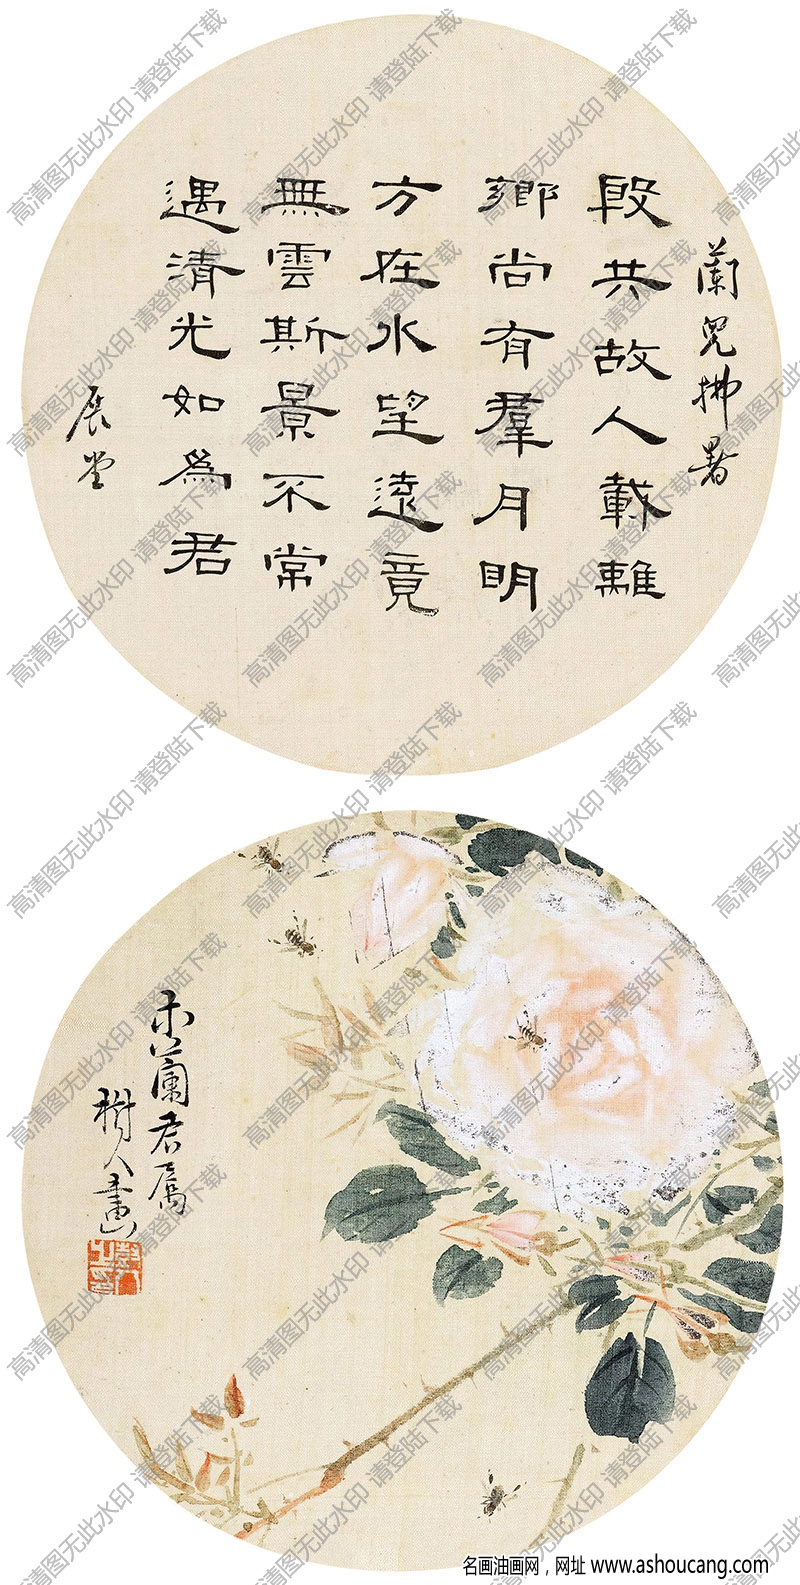 蘭兄拂暑
殷共故人載離
鄉尚有羣月明
方在水望遠竟
無雲斯景不常
遇清光如爲君
展堂
蘭君屬
樹人畫
高清图无此水印 请登陆下载
名画油画网，网址 www.ashoucang.com